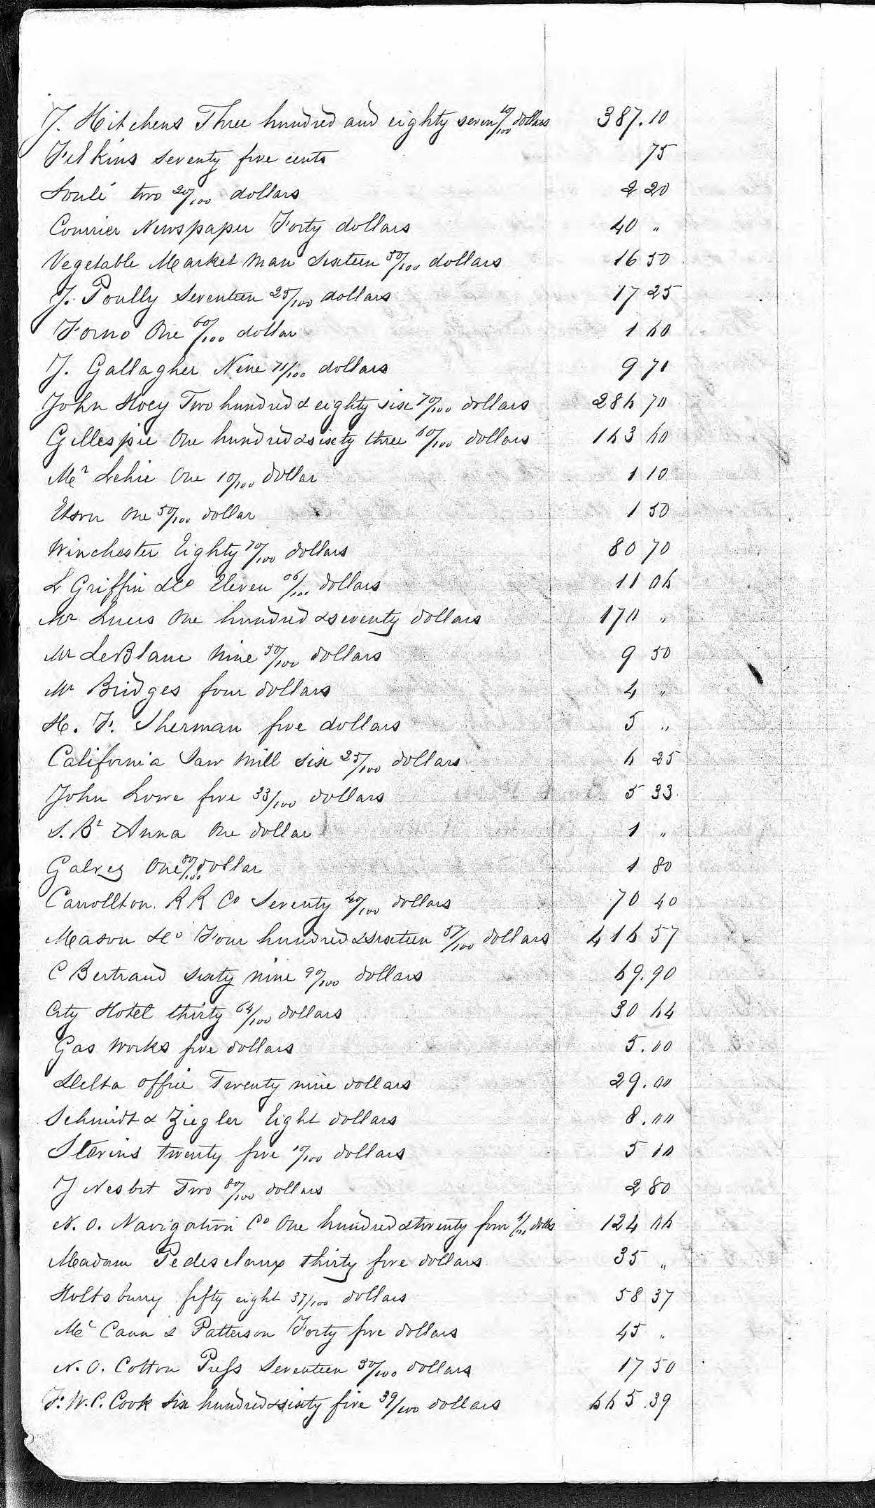 J. Hitchens Three hundred and eighty seven 10/100 dollars 387.10
Felkins seventy five cents 75
Soulé two 20/100 dollars 2 20
Courier Newspaper Forty dollars 40 "
Vegetable Market Man Sixteen 50/100 dollars 16 50
J. Poully Seventeen 25/100 dollars 17 25
Forno One 60/100 dollar 1 60
J. Gallagher Nine 71/100 dollars 9 71
John Hoey Two hundred & eighty six 70/100 dollars 286 70
Gillespie One hundred & sixty three 60/100 dollars 163 60
Mc Lehie One 10/100 dollar 1 10
One 50/100 dollar 1 50
Winchester Eighty 70/100 dollars 80 70
L Griffin & Co Eleven 06/100 dollars 11 06
Mr Luers One hundred & seventy dollars 170 "
Mr LeBlanc Nine 50/100 dollars 9 50
Mr Bridges four dollars 4 "
H. F. Sherman five dollars 5 "
California Saw Mill six 25/100 dollars 6 25
John Lowe five 33/100 dollars 5 33
S. Bt Anna One dollar 1 "
Galvez One 80/100 dollar 1 80
Carrollton R R Co Seventy 40/100 dollars 70 40
Mason & Co Four hundred & sixteen 57/100 dollars 416 57
C Bertrand sixty nine 90/100 dollars 69.90
City Hotel thirty 64/100 dollars 30 64
Gas Works five dollars 5.00
Delta office Twenty nine dollars 29.00
Schmidt & Ziegler Eight dollars 8.00
Stevins twenty five 10/100 dollars 5 10
J Nesbit Two 80/100 dollars 2 80
N. O. Navigation Co One hundred & twenty four 6/100 dolls 124 06
Madam Pedesclaux thirty five dollars 35 "
Holtsburry fifty eight 37/100 dollars 58 37
Mc Cann & Patterson Forty five dollars 45 "
N. O. Cotton Press Seventeen 50/100 dollars 17 50
F. W. C. Cook Six hundred & sixty five 39/100 dollars 665.39